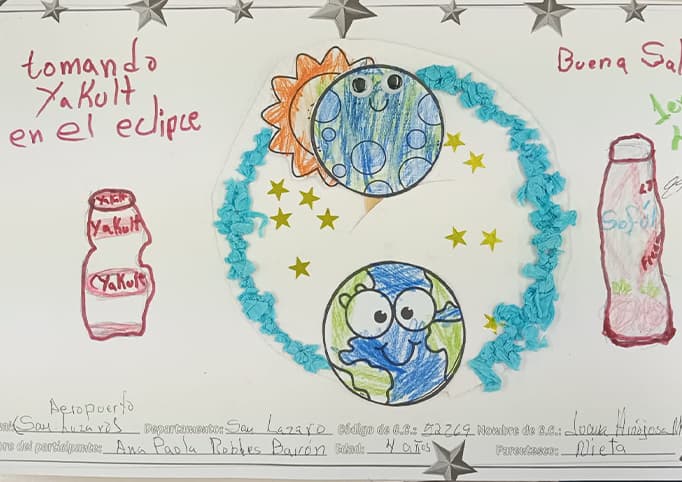 tomando
Yakult
en el eclipce
Buena Sal
Yakult
Yakult
Yakult
LT
Sofúl
Fresa
Aeropuerto
San Lazaro Departamento: San Lazaro Código de C.C.: 52269 Nombre de C.C.:
bre del participante: Ana Paola Robles Bairón Edad: 4 años Parentesco: Nieta